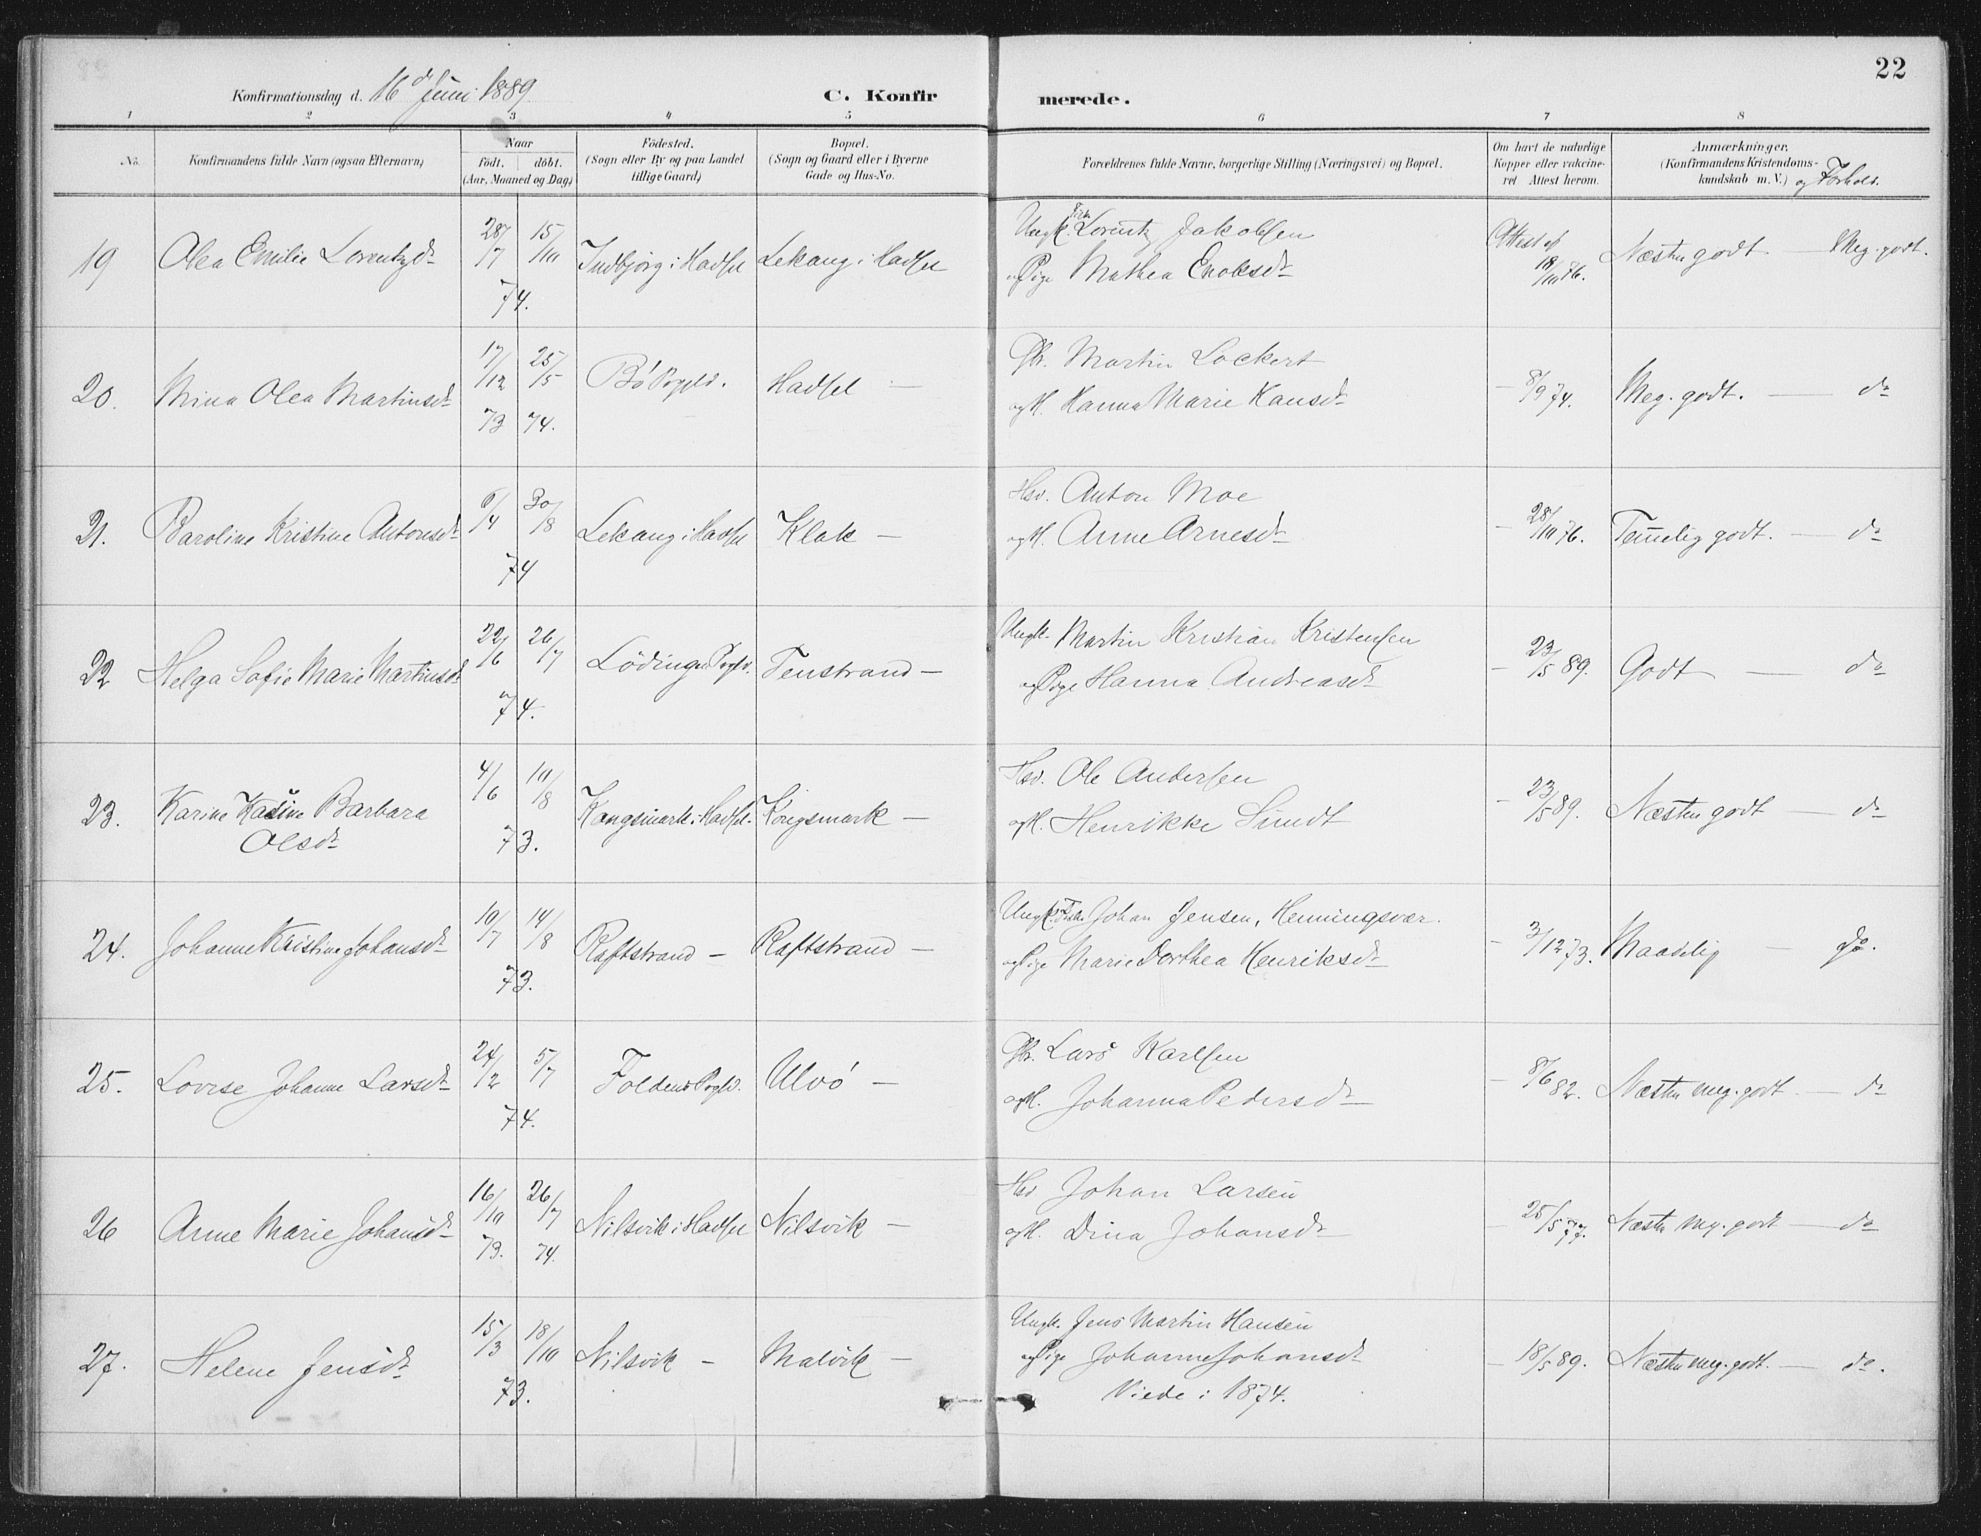 22
Konfirmationsdag d. 16d Juni 1889
C. Konfirmerede.
1 2 3 4 5 6 7 8
No.
Konfirmandens fulde Navn (ogsaa Efternavn)
Naar
født. døbt.
(Aar, Maaned og Dag)
Fødested.
(Sogn eller By og paa Landet
tillige Gaard)
Bopæl.
(Sogn og Gaard eller i Byerne
Gade og Hus-No.
Forældrenes fulde Navne, borgerlige Stilling (Næringsvei) og Bopæl.
Om havt de naturlige
Kopper eller vakcine-
ret Attest herom.
Anmærkninger.
(Konfirmandens Kristendoms-
kundskab m. V.) og Forhold.
19 Olea Emilie Lorentzdr 28/7 15/10 74. i Hadsel Lekang i Hadsel
Ungk. Lorentz Jakobsen
og Pige Mathea Enoksdr
Attest af 18/10 76. Næsten godt — Meg. godt.
20. Mina Olea Martinsdr 17/12 73 25/5 74. Bø Prgld. Hadsel —
Gbr. Martin Lockert
og H. Hanna Marie Hansdr
— 8/9 74. Meg. godt. — do
21. Baroline Kristine Antonsdr 6/4 30/8 74 Lekang i Hadsel Klak —
Hsv. Anton Moe
og H. Anne Arnesdr
— 28/10 76. Temmelig godt. — do
22 Helga Sofie Marie Martinsdr 22/6 26/7 74. Lødingen Prgld. Tenstrand —
Ungk. Martin Kristian Kristensen
og Pige Hanna Andreasdr
— 23/5 89. Godt — do
23. Karine Barbara
Olsdr 4/6 10/8 73. Kongsmark i Hadsel. Kongsmark —
Hsv. Ole Andersen
og H. Henrikke Sundt
— 23/5 89. Næsten godt — do
24. Johanne Kristine Johansdr 10/7 14/8 73. Raftstrand — Raftstrand —
Ungk. Fisk. Johan Jensen, Henningsvær.
og Pige Marie Dorthea Henriksdr
— 3/12 73. Maadelig — do.
25. Lovise Johanne Larsdr 24/2 5/7 74. Foldens Prgld. Ulvø —
Gbr. Lars Karlsen
og H. Johanna Pedersdr
— 8/6 82. Næsten meg. godt. — do
26 Anne Marie Johansdr 16/10 73. 26/7 74. Nilsvik i Hadsel Nilsvik —
Hsv Johan Larsen
og H. Dina Johansdr
— 25/5 77. Næsten meg. godt — do
27. Helene Jensdr 15/3 18/10 73. Nilsvik — Malvik —
Ungk. Jens Martin Hansen
og Pige Johanne Johansdr
Viede i 1874.
— 18/5 89. Næsten meg. godt. — do.